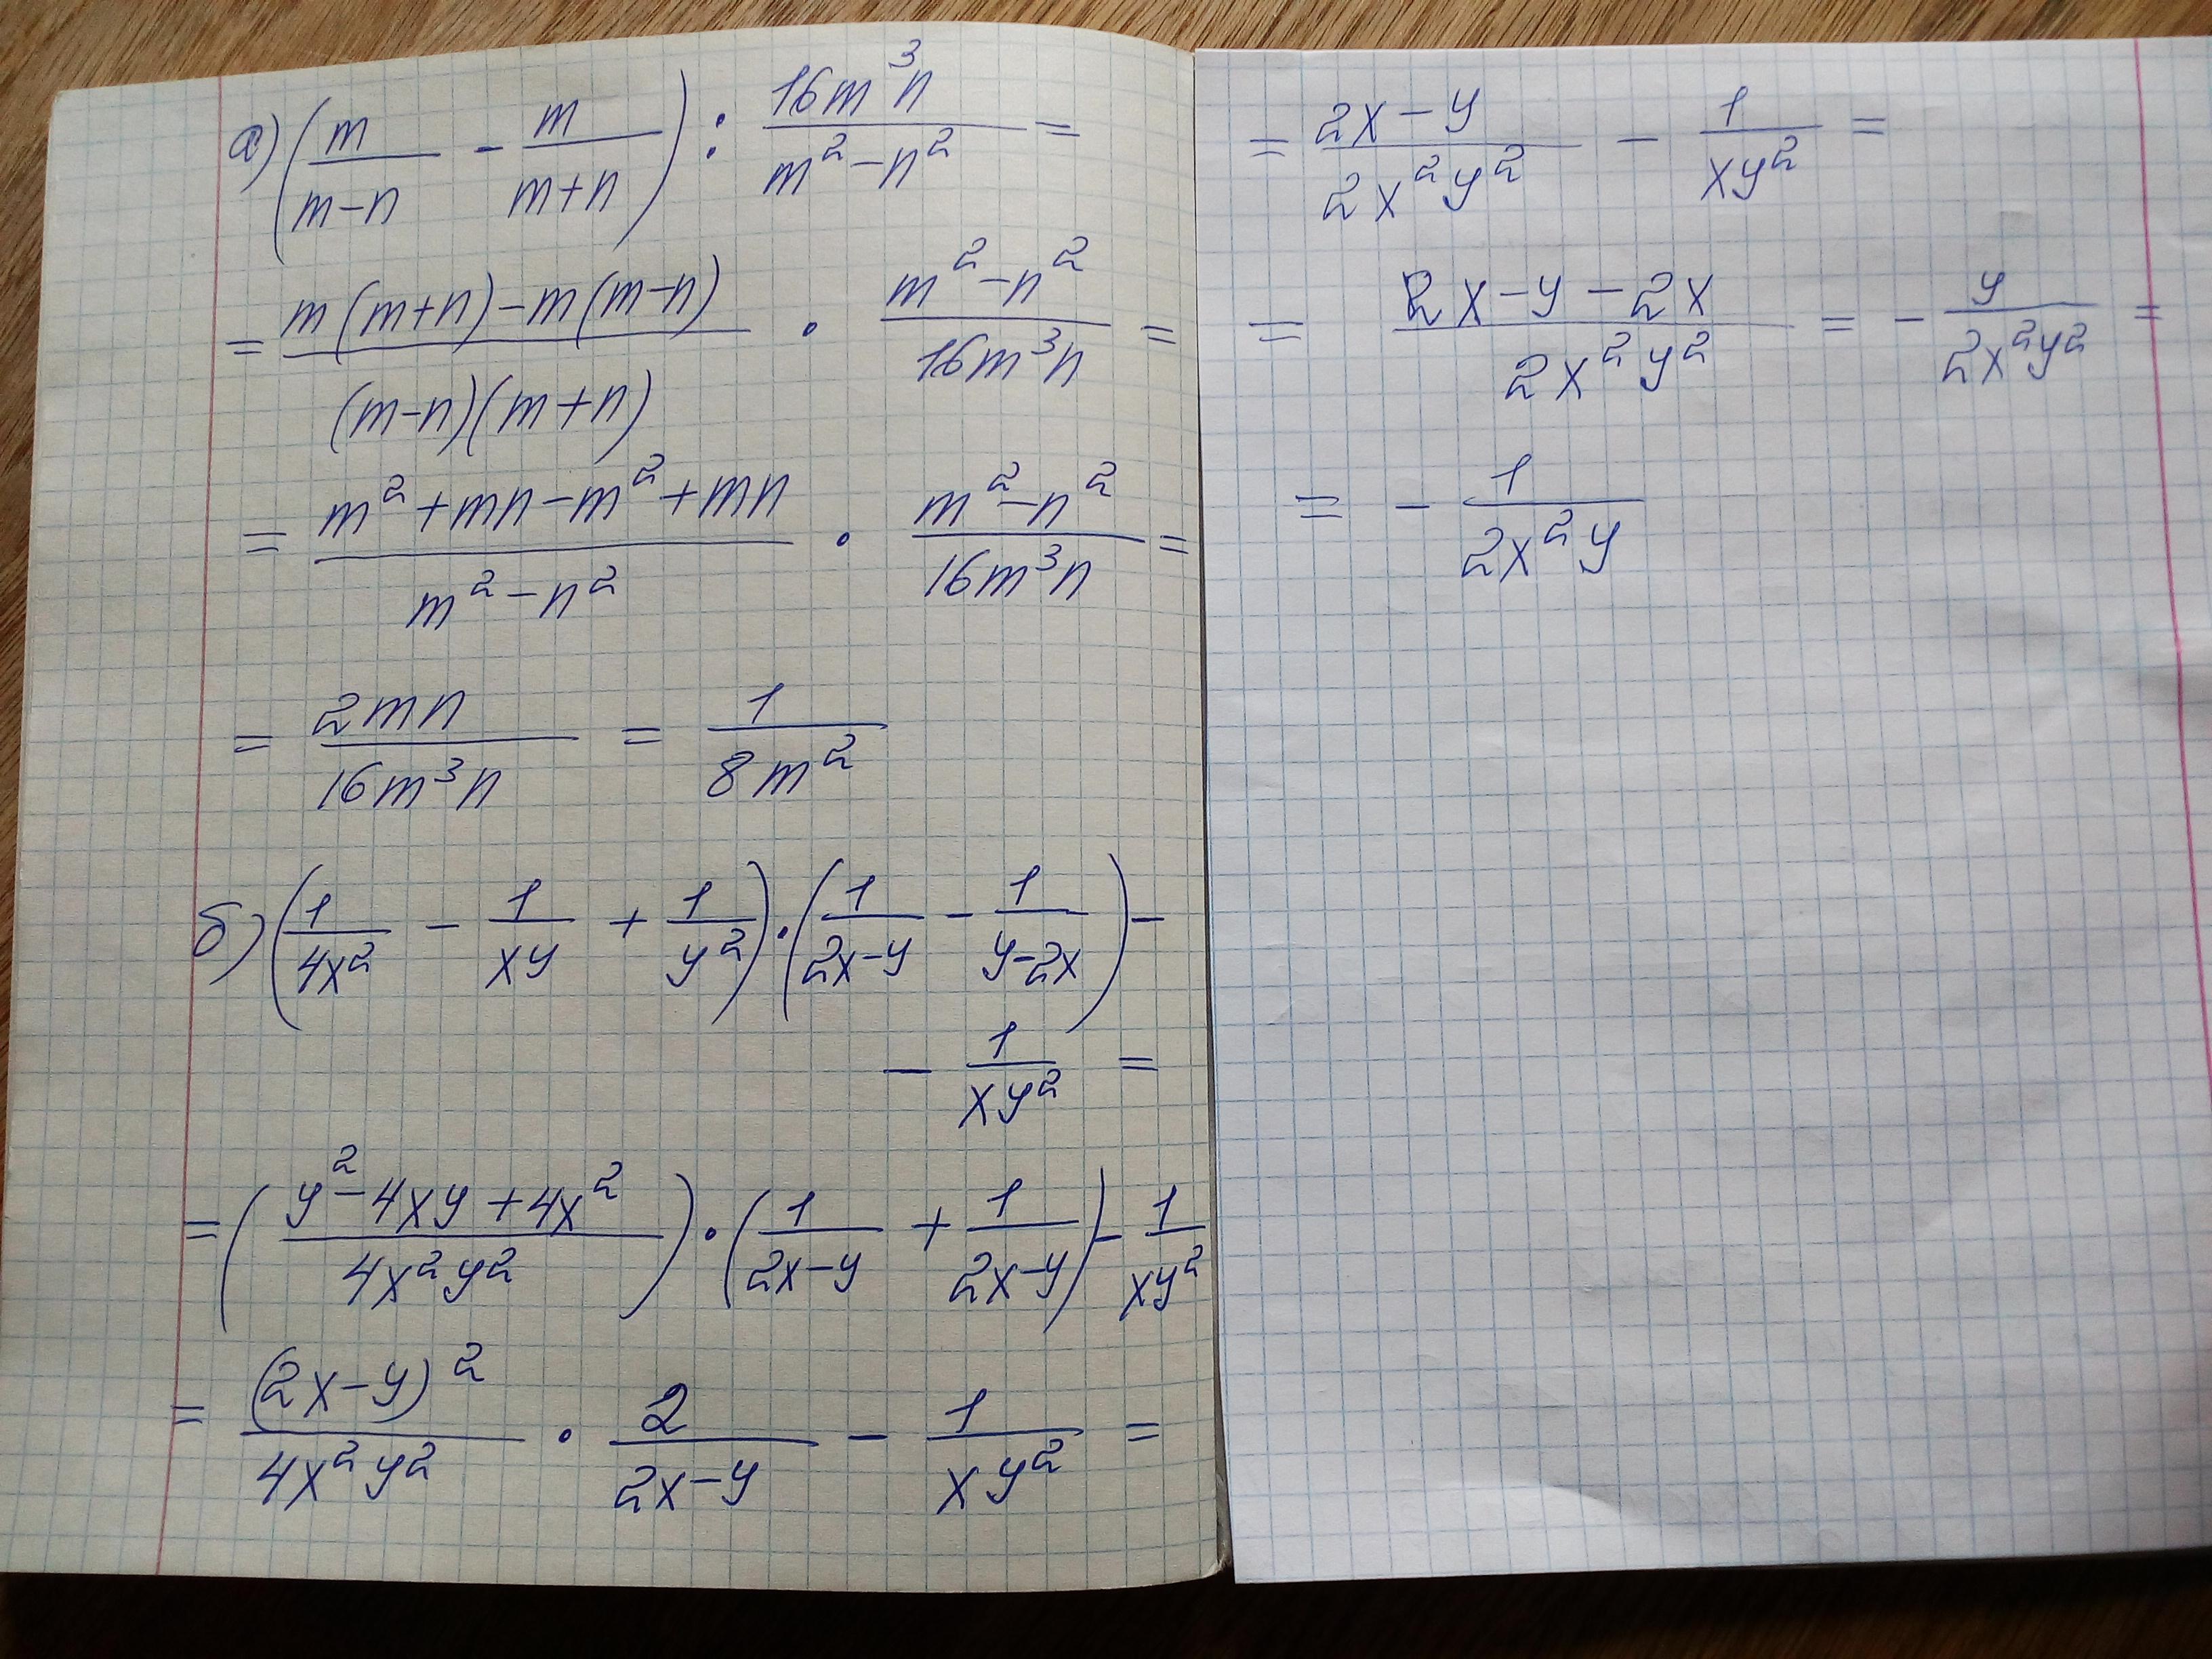 а) (m/(m-n) - m/(m+n)) : 16m³n/(m²-n²) =
= (m(m+n)-m(m-n))/((m-n)(m+n)) · (m²-n²)/(16m³n) =
= (m²+mn-m²+mn)/(m²-n²) · (m²-n²)/(16m³n) =
= 2mn/(16m³n) = 1/(8m²)
б) (1/(4x²) - 1/(xy) + 1/y²) · (1/(2x-y) - 1/(y-2x)) -
- 1/(xy²) =
= ((y²-4xy+4x²)/(4x²y²)) · (1/(2x-y) + 1/(2x-y)) - 1/(xy²)
= (2x-y)²/(4x²y²) · 2/(2x-y) - 1/(xy²) =
= (2x-y)/(2x²y²) - 1/(xy²) =
= (2x-y-2x)/(2x²y²) = - y/(2x²y²) =
= - 1/(2x²y)